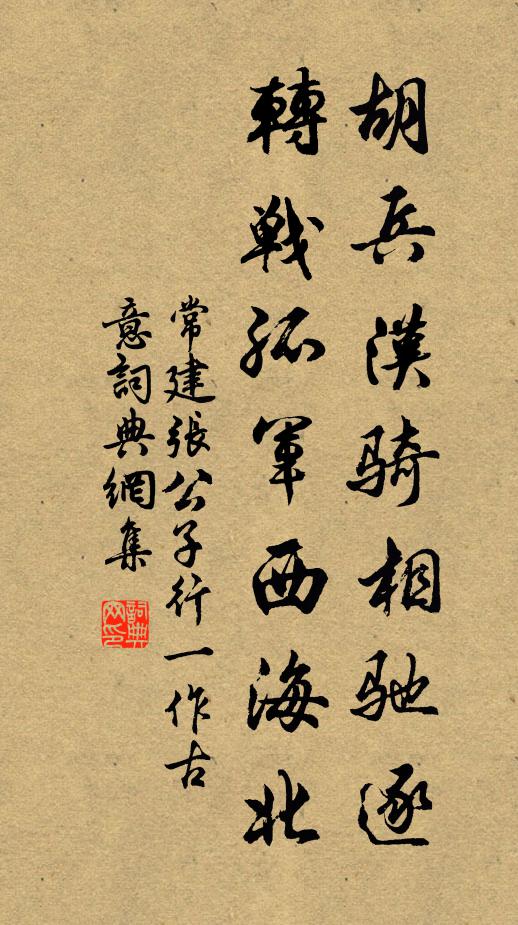 胡兵漢騎相馳逐
轉戰孤軍西海北
常建張公子行一作古
意詞典網集
詞典網印